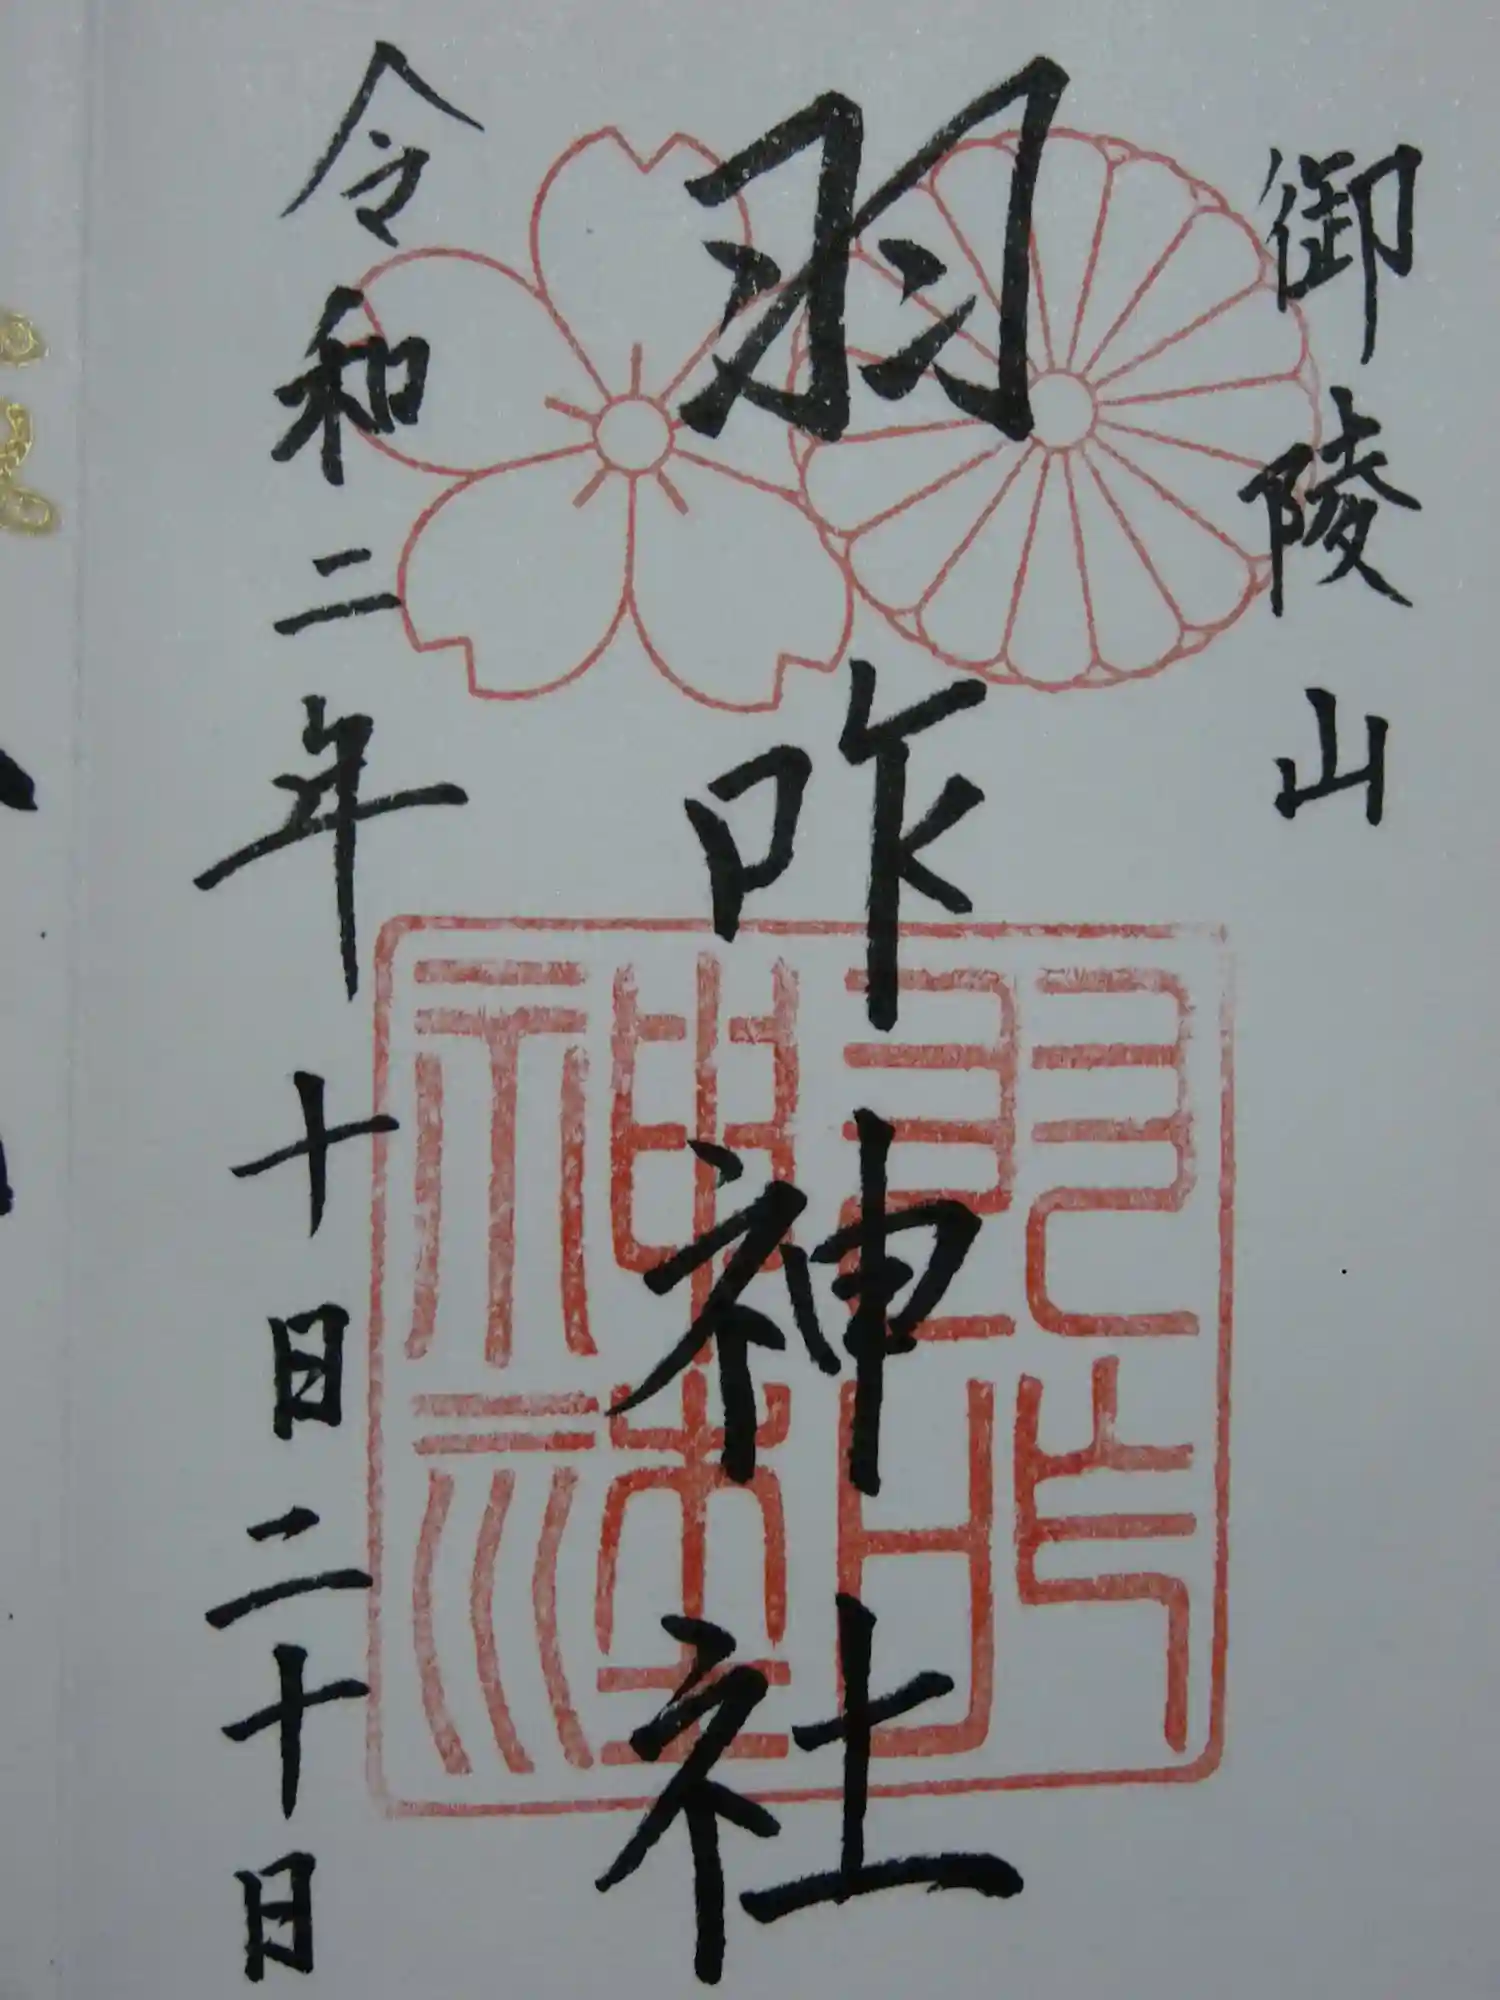 御陵山
羽咋神社
令和二年十日二十日
羽咋
神社